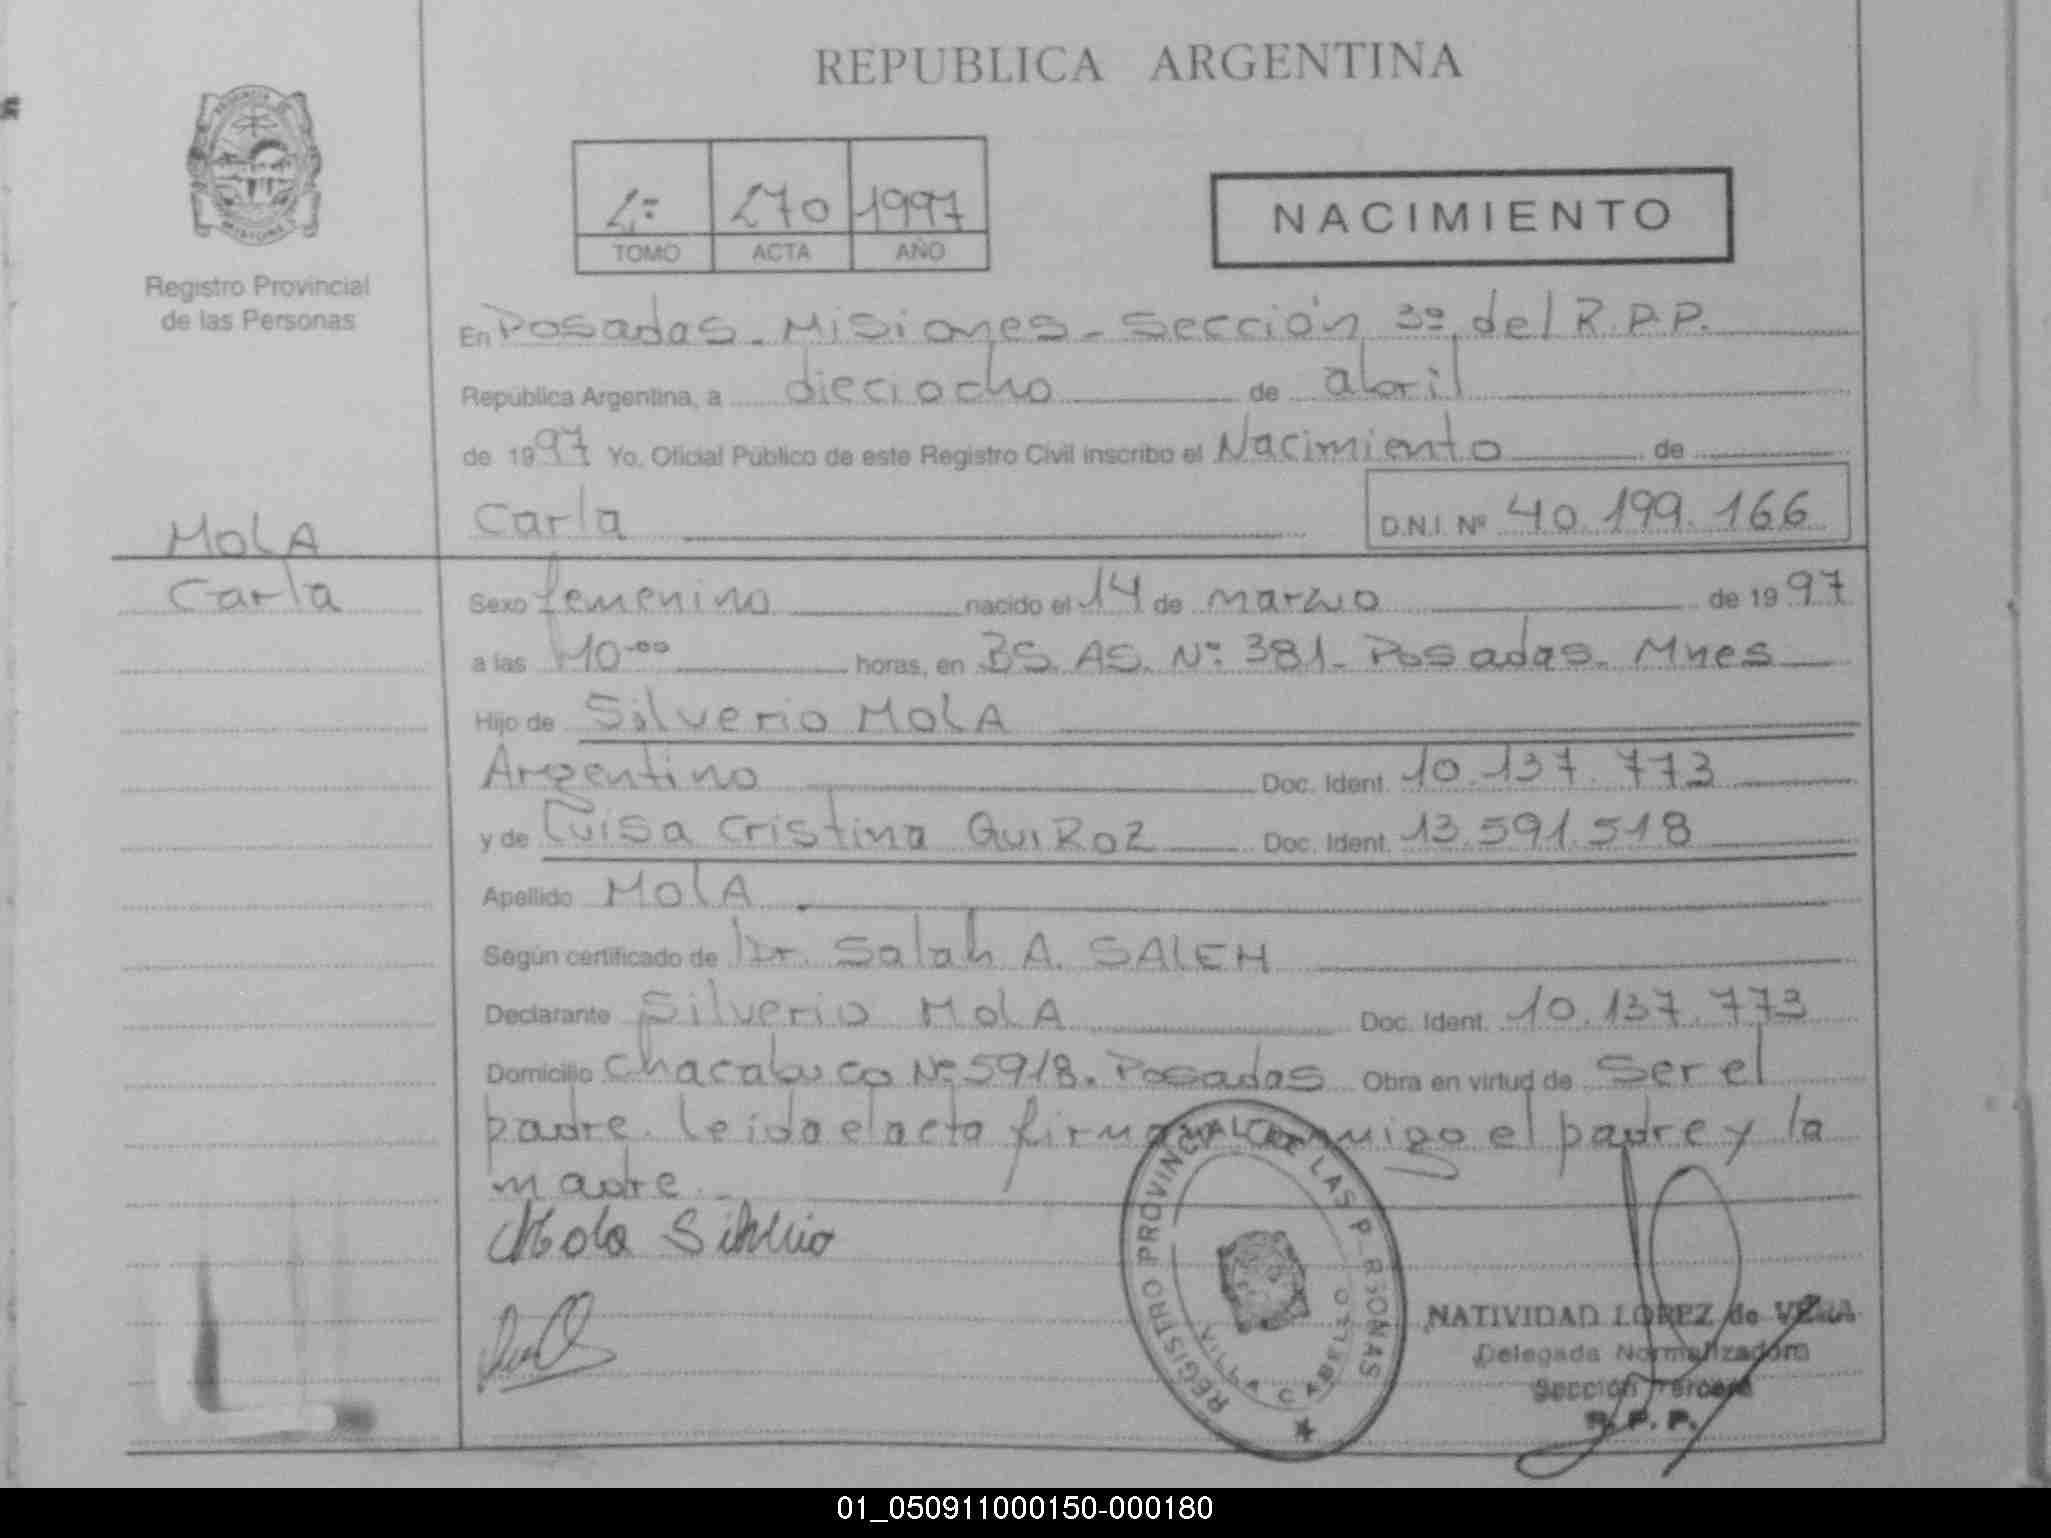 REPUBLICA ARGENTINA
270 1997
TOMO ACTA AÑO
NACIMIENTO
Registro Provincial
de las Personas
En Posadas - Misiones - Sección 3º del R.P.P.
República Argentina, a dieciocho de abril
de 1997 Yo, Oficial Público de este Registro Civil inscribo el Nacimiento de
Carla D.N.I. Nº 40.199.166
MOLA
Carla
Sexo femenino nacido el 14 de marzo de 1997
a las 10-00 horas, en BS. AS. Nº 381 - Posadas - Mnes
Hijo de Silverio MOLA
Argentino Doc. Ident. 10.137.773
y de Luisa Cristina QUIROZ Doc. Ident. 13.591.518
Apellido MOLA
Según certificado de Dr. Salah A. SALEH
Declarante Silverio MOLA Doc. Ident. 10.137.773
Domicilio Chacabuco Nº 5918. Posadas Obra en virtud de Ser el
padre. leida el acta firma conmigo el padre y la
madre.
Mola Silverio
REGISTRO PROVINCIAL DE LAS PERSONAS
VILLA CABELLO
NATIVIDAD LOPEZ de VERA
Delegada Normalizadora
Sección Tercera
R. P. P.
01_050911000150-000180